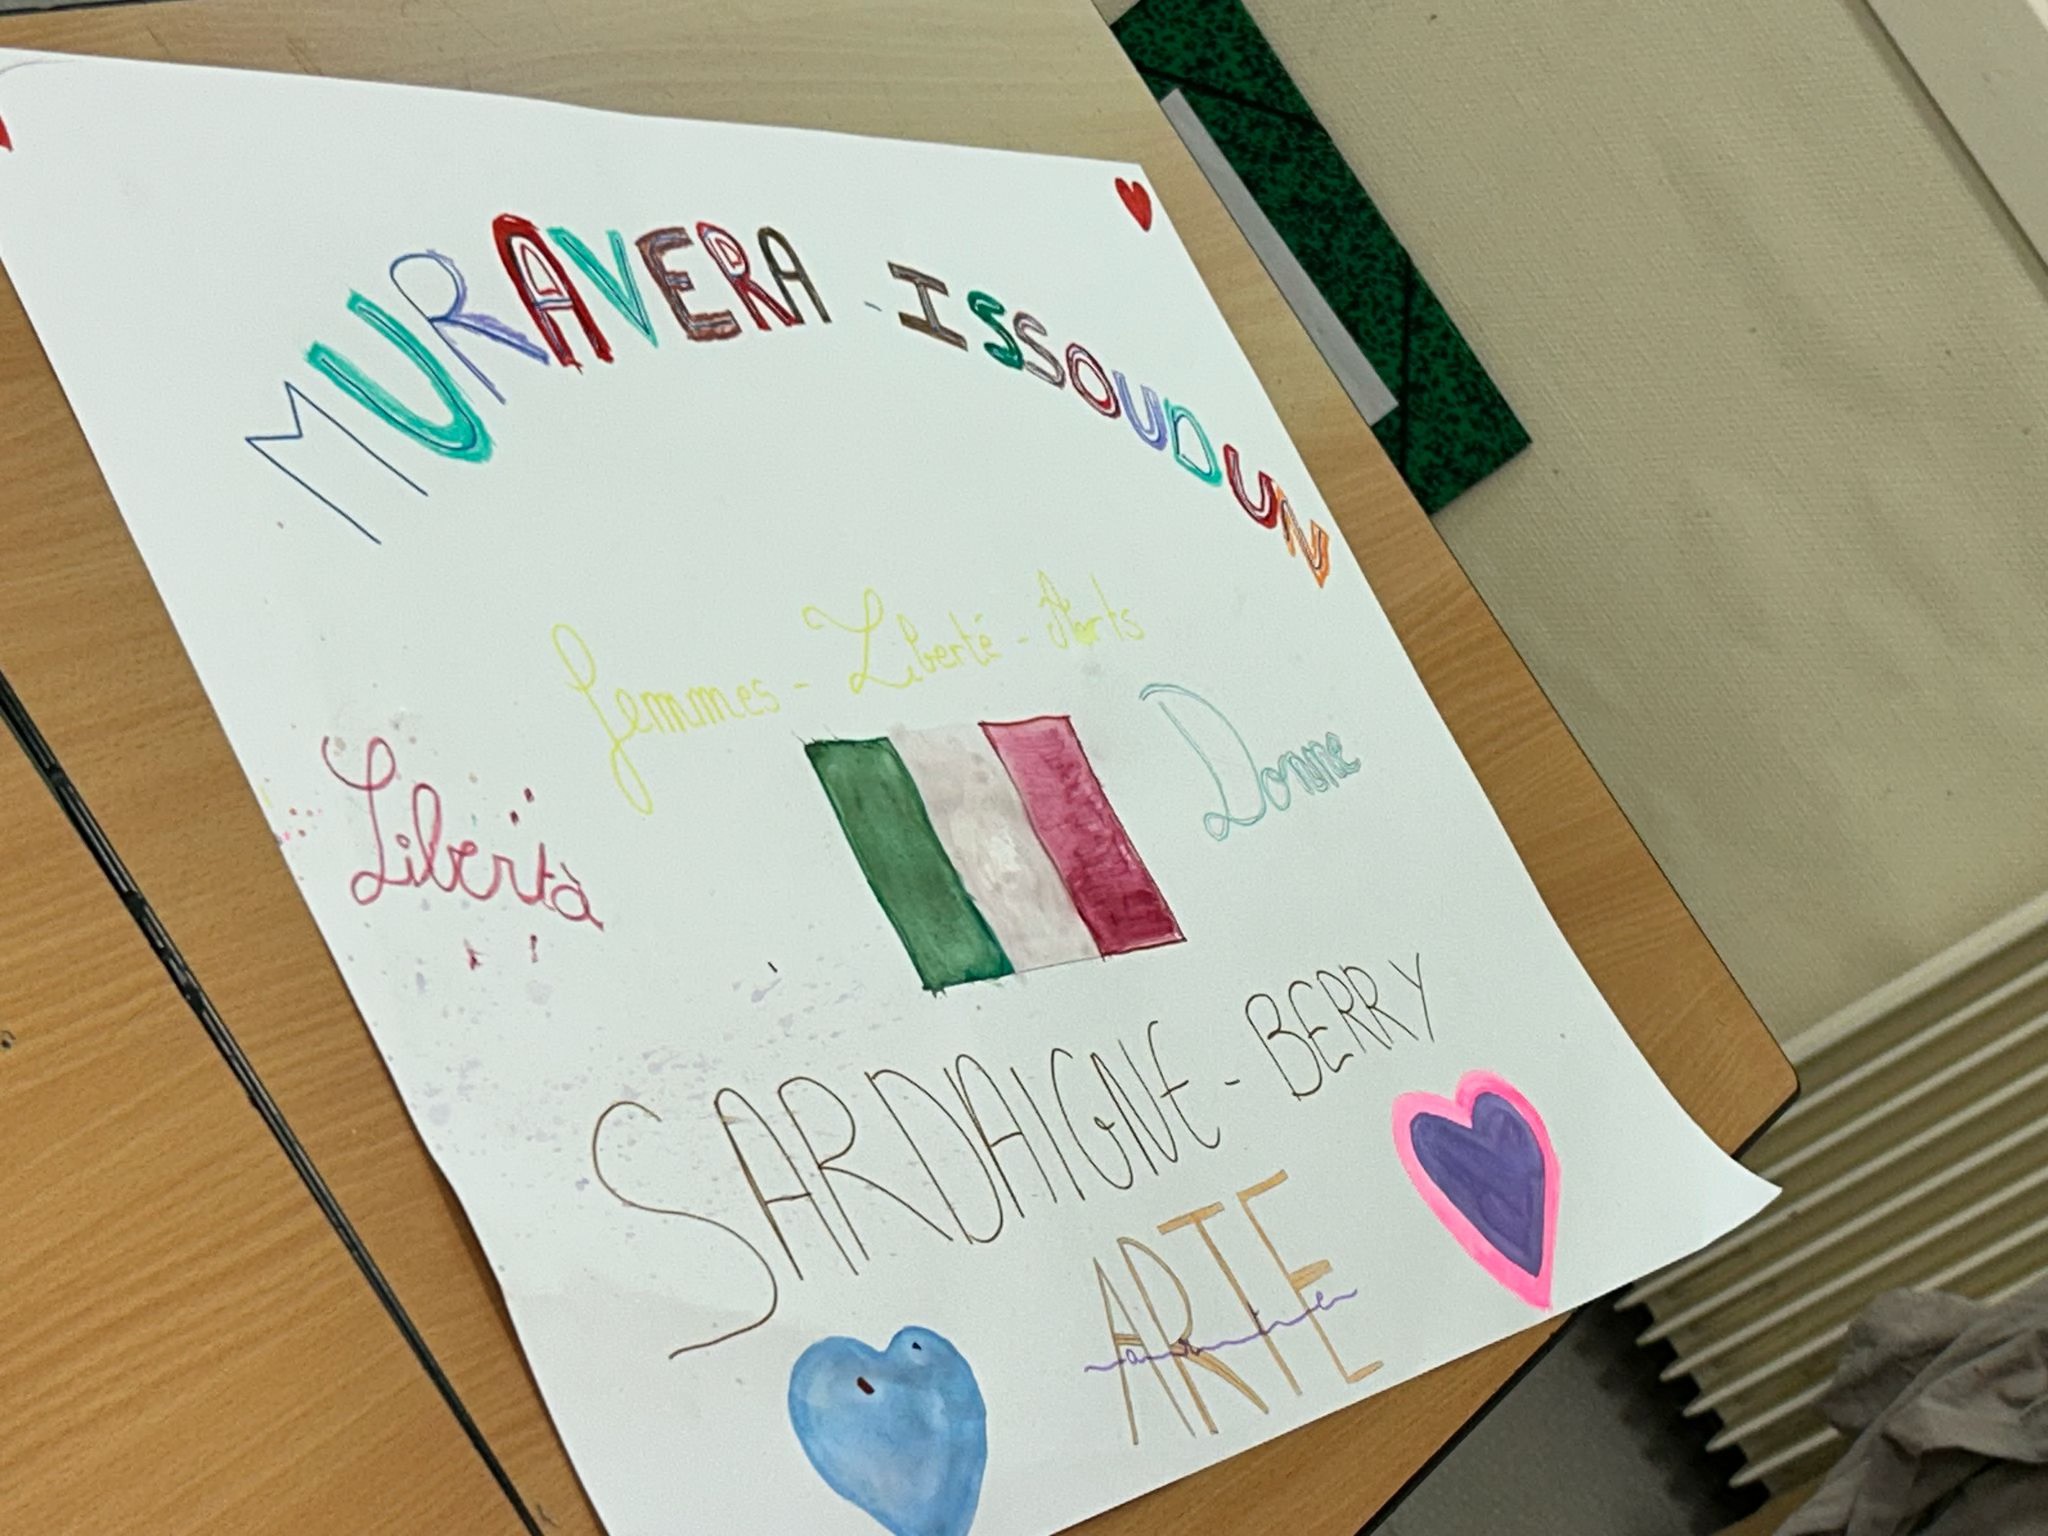 MURAVERA - ISSOUDUN
Femmes - Liberté - Arts
Libertà
Donne
SARDAIGNE - BERRY
ARTE